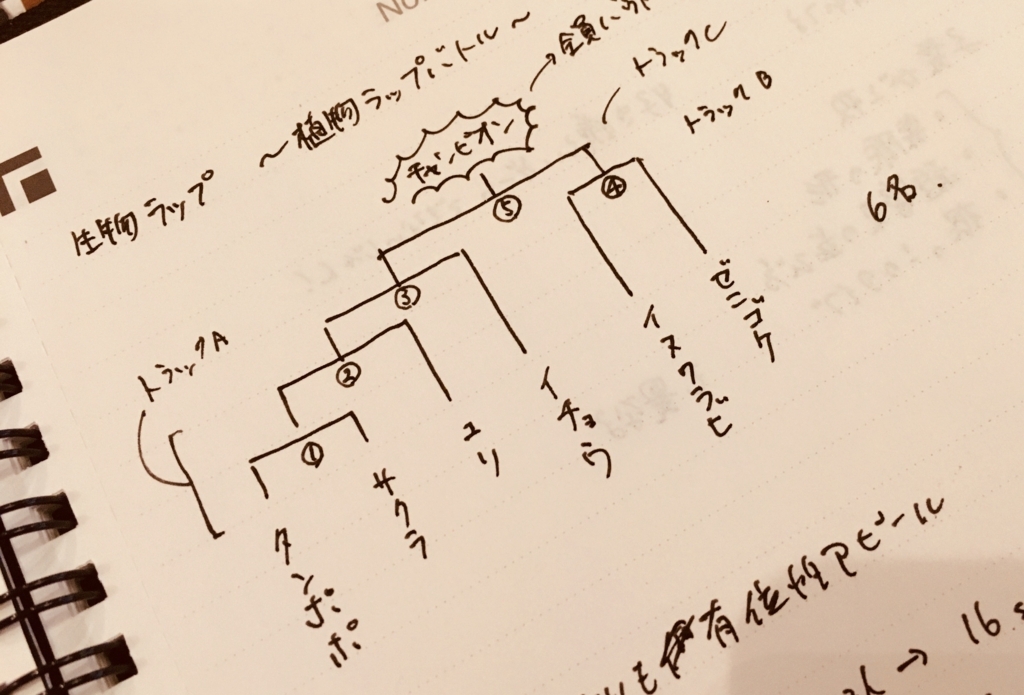 No.
生物ラップ ~植物ラップバトル~
チャンピオン
→全員に
トラックC
トラックB
6名.
⑤
④
③
②
①
トラックA
ゼニゴケ
イヌワラビ
イチョウ
ユリ
サクラ
タンポポ
有位性アピール
→ 16